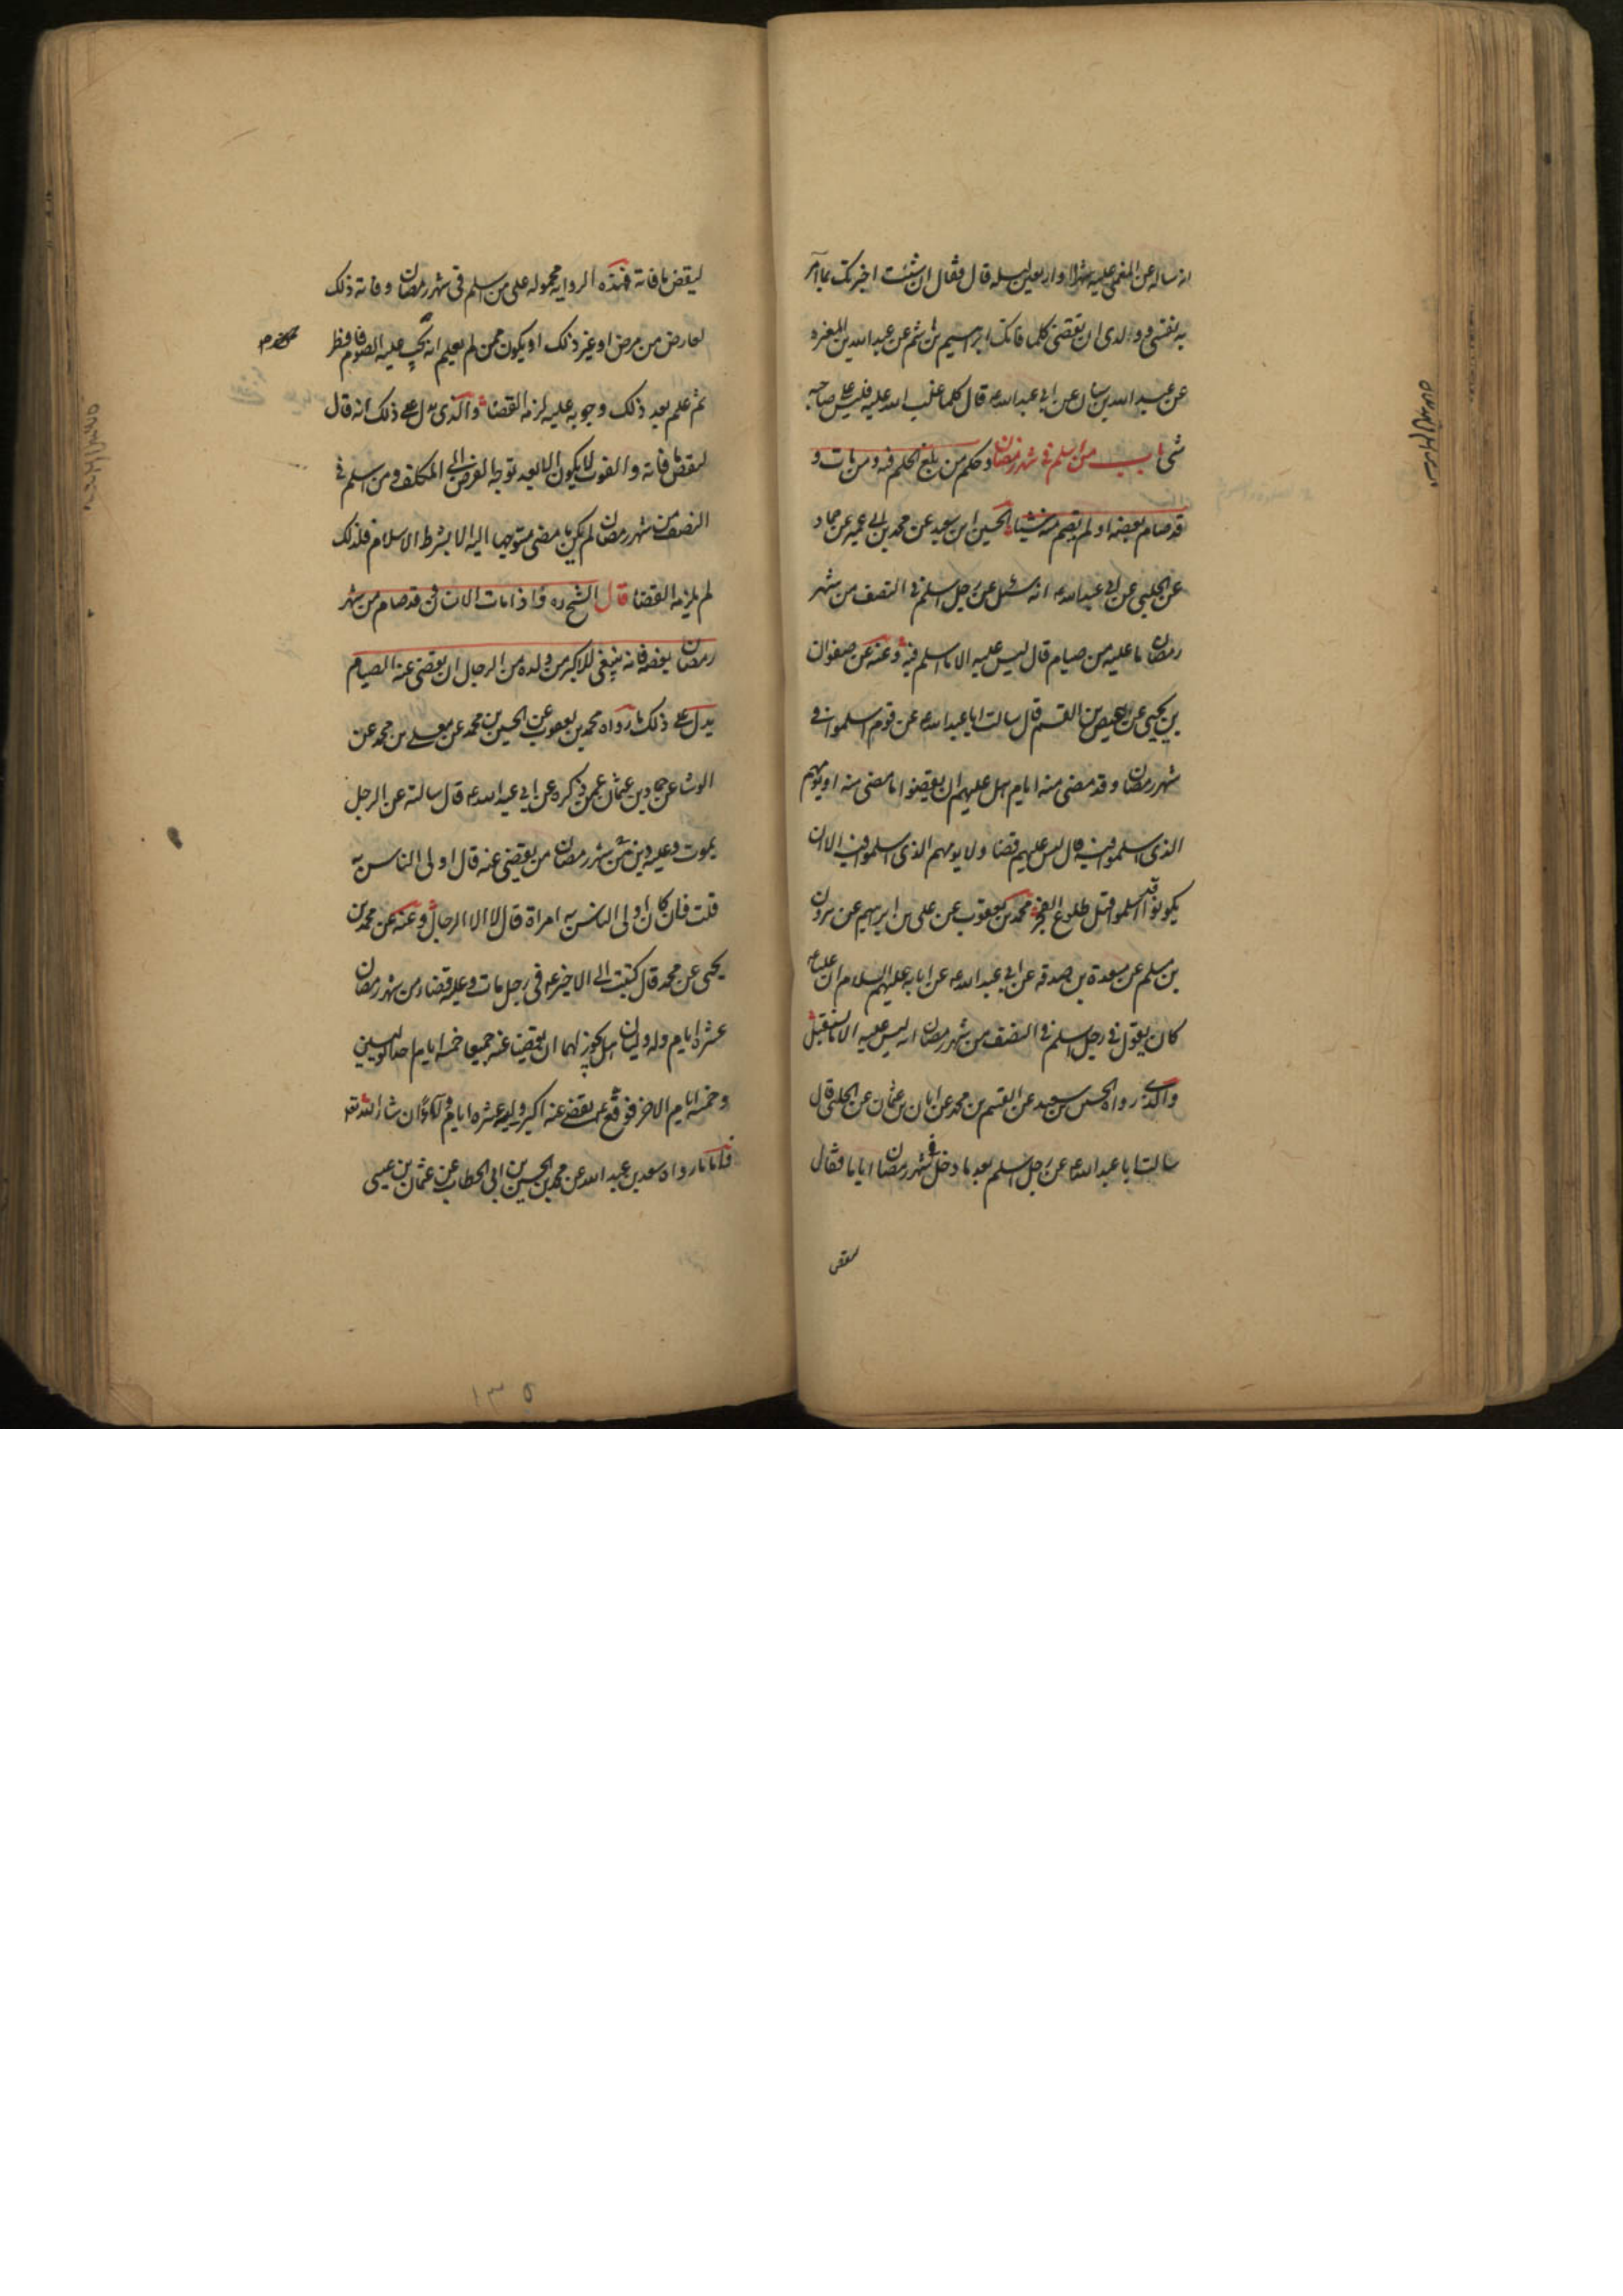 انه ساله عن المغمى عليه شهرا او اربعين ليله قال فقال ان شئت اخبرتك بما آمر
به نفسى و ولدى ان تقضى كلما فاتك ابرهيم بن هشم عن عبد الله بن المغيره
عن عبد الله بن سنان عن ابى عبد الله ع قال كلما غلب الله عليه فليس على صاحبه
شى باب من اسلم فى شهر رمضان و حكم من بلغ الحلم فيه و من مات و
قد صام بعضه او لم يصم منه شيئا الحسين ابن سعيد عن محمد بن ابى عمير عن حماد
عن الحلبى عن ابى عبد الله ع انه سئل عن رجل اسلم فى النصف من شهر
رمضان ما عليه من صيام قال ليس عليه الا ما اسلم فيه و عنه عن صفوان
بن يحيى عن عيص بن القسم قال سالت ابا عبد الله ع عن قوم اسلموا فى
شهر رمضان و قد مضى منه ايام هل عليهم ان يقضوا ما مضى منه او يومهم
الذى اسلموا فيه قال ليس عليهم قضا ولا يومهم الذى اسلموا فيه الا ان
يكونوا اسلموا قبل طلوع الفجر محمد بن يعقوب عن على بن ابرهيم عن هرون
بن مسلم عن مسعدة بن صدقه عن ابى عبد الله ع عن ابايه عليهم السلام ان عليا ع
كان يقول فى رجل اسلم فى النصف من شهر رمضان انه ليس عليه الا ما يستقبل
والذى رواه الحسين بن سعيد عن القسم بن محمد عن ابان بن عثمان عن الحلبى قال
سالت ابا عبد الله ع عن رجل اسلم بعد ما دخل فى شهر رمضان اياما فقال
ليقض
ليقض ما فاته فهذه الروايه محموله على من اسلم فى شهر رمضان و فاته ذلك
لعارض من مرض او غير ذلك او يكون ممن لم يعلم انه يجب عليه الصوم فافطر
ثم علم بعد ذلك وجوبه عليه لزمه القضا والذى يدل على ذلك انه قال
ليقض ما فاته و الفوت لا يكون الا بعد توجه الفرض الى المكلف و من اسلم فى
النصف من شهر رمضان لم يكن ما مضى متوجها اليه الا بشرط الاسلام فلذلك
لم يلزمه القضا قال الشيخ ره و اذا مات الانسان و قد صام من شهر
رمضان بعضه فانه ينبغى للاكبر من ولده من الرجال ان يقضى عنه الصيام
يدل على ذلك ما رواه محمد بن يعقوب عن الحسين بن محمد عن معلى بن محمد عن
الوشا عن حماد بن عثمان عمن ذكره عن ابى عبد الله ع قال سالته عن الرجل
يموت و عليه دين من شهر رمضان من يقضى عنه قال اولى الناس به
قلت فان كان اولى الناس به امراة قال لا الا الرجال و عنه عن محمد بن
يحيى عن محمد قال كتبت الى الاخير ع فى رجل مات و عليه قضاء من شهر رمضان
عشره ايام وله وليان هل يجوز لهما ان يقضيا عنه جميعا خمسه ايام احد الوليين
و خمسه ايام الاخر فوقع ع يقضى عنه اكبر وليه عشره ايام ولاء ان شاء الله تع
فاما ما رواه سعد بن عبد الله عن محمد بن الحسين بن ابى الخطاب عن عثمان بن عيسى
۱۳۵